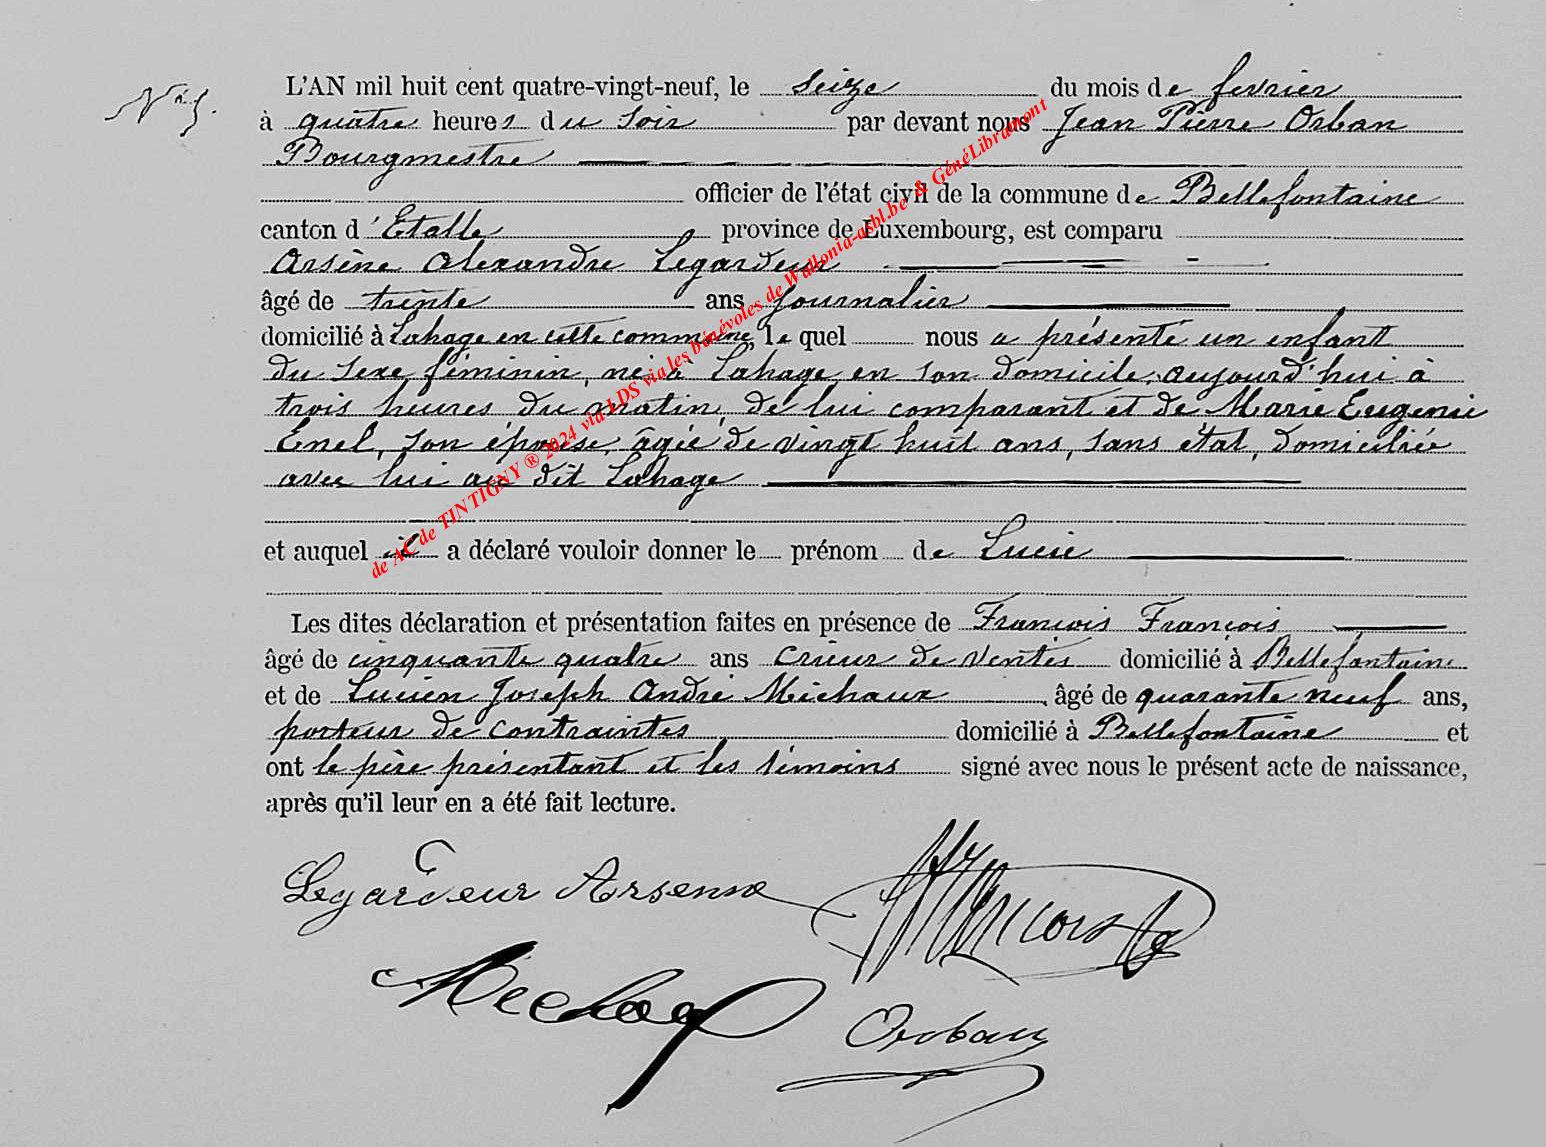 N° 5.
L'AN mil huit cent quatre-vingt-neuf, le seize du mois de fevrier
à quatre heures du soir par devant nous Jean Pierre Orban
Bourgmestre
officier de l'état civil de la commune de Bellefontaine
canton d'Etalle province de Luxembourg, est comparu
Arsène Alexandre Legardeur
âgé de trente ans journalier
domicilié à Lahage en cette commune, le quel nous a présenté un enfant
du sexe féminin, né à Lahage en son domicile, aujourd'hui à
trois heures du matin, de lui comparant et de Marie Eugenie
Enel, son épouse, âgée de vingt huit ans, sans état, domiciliée
avec lui au dit Lahage
et auquel il a déclaré vouloir donner le prénom de Lucie
Les dites déclaration et présentation faites en présence de François François
âgé de cinquante quatre ans crieur de ventes domicilié à Bellefontaine
et de Lucien Joseph André Michaux, âgé de quarante neuf ans,
porteur de contraintes domicilié à Bellefontaine et
ont le père présentant et les témoins signé avec nous le présent acte de naissance,
après qu'il leur en a été fait lecture.
Legardeur Arsenne
François
Orban
de AC de TINTIGNY ® 2024 via LDS via les bénévoles de Wallonia-asbl.be & GénéLibramont